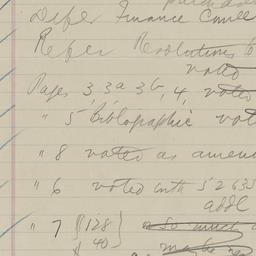 Defer Finance Comee
Refer Resolutions to
voted
Pages 3, 3a 3b, 4, voted
" 5 Bibliographic vot
" 8 voted as amen
" 6 voted with 52635
addl
" 7 $128
$ 40
may be